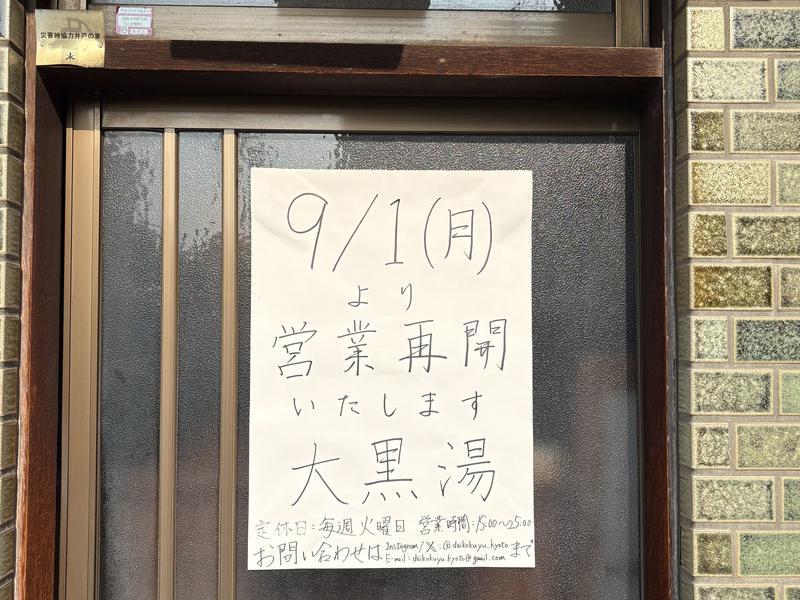 災害時協力井戸の家
9/1(月)
より
営業再開
いたします
大黒湯
定休日:毎週火曜日 営業時間:15:00~25:00
お問い合わせは Instagram/X:@daikokuyu_kyoto まで
E-mail:daikokuyu.kyoto@gmail.com